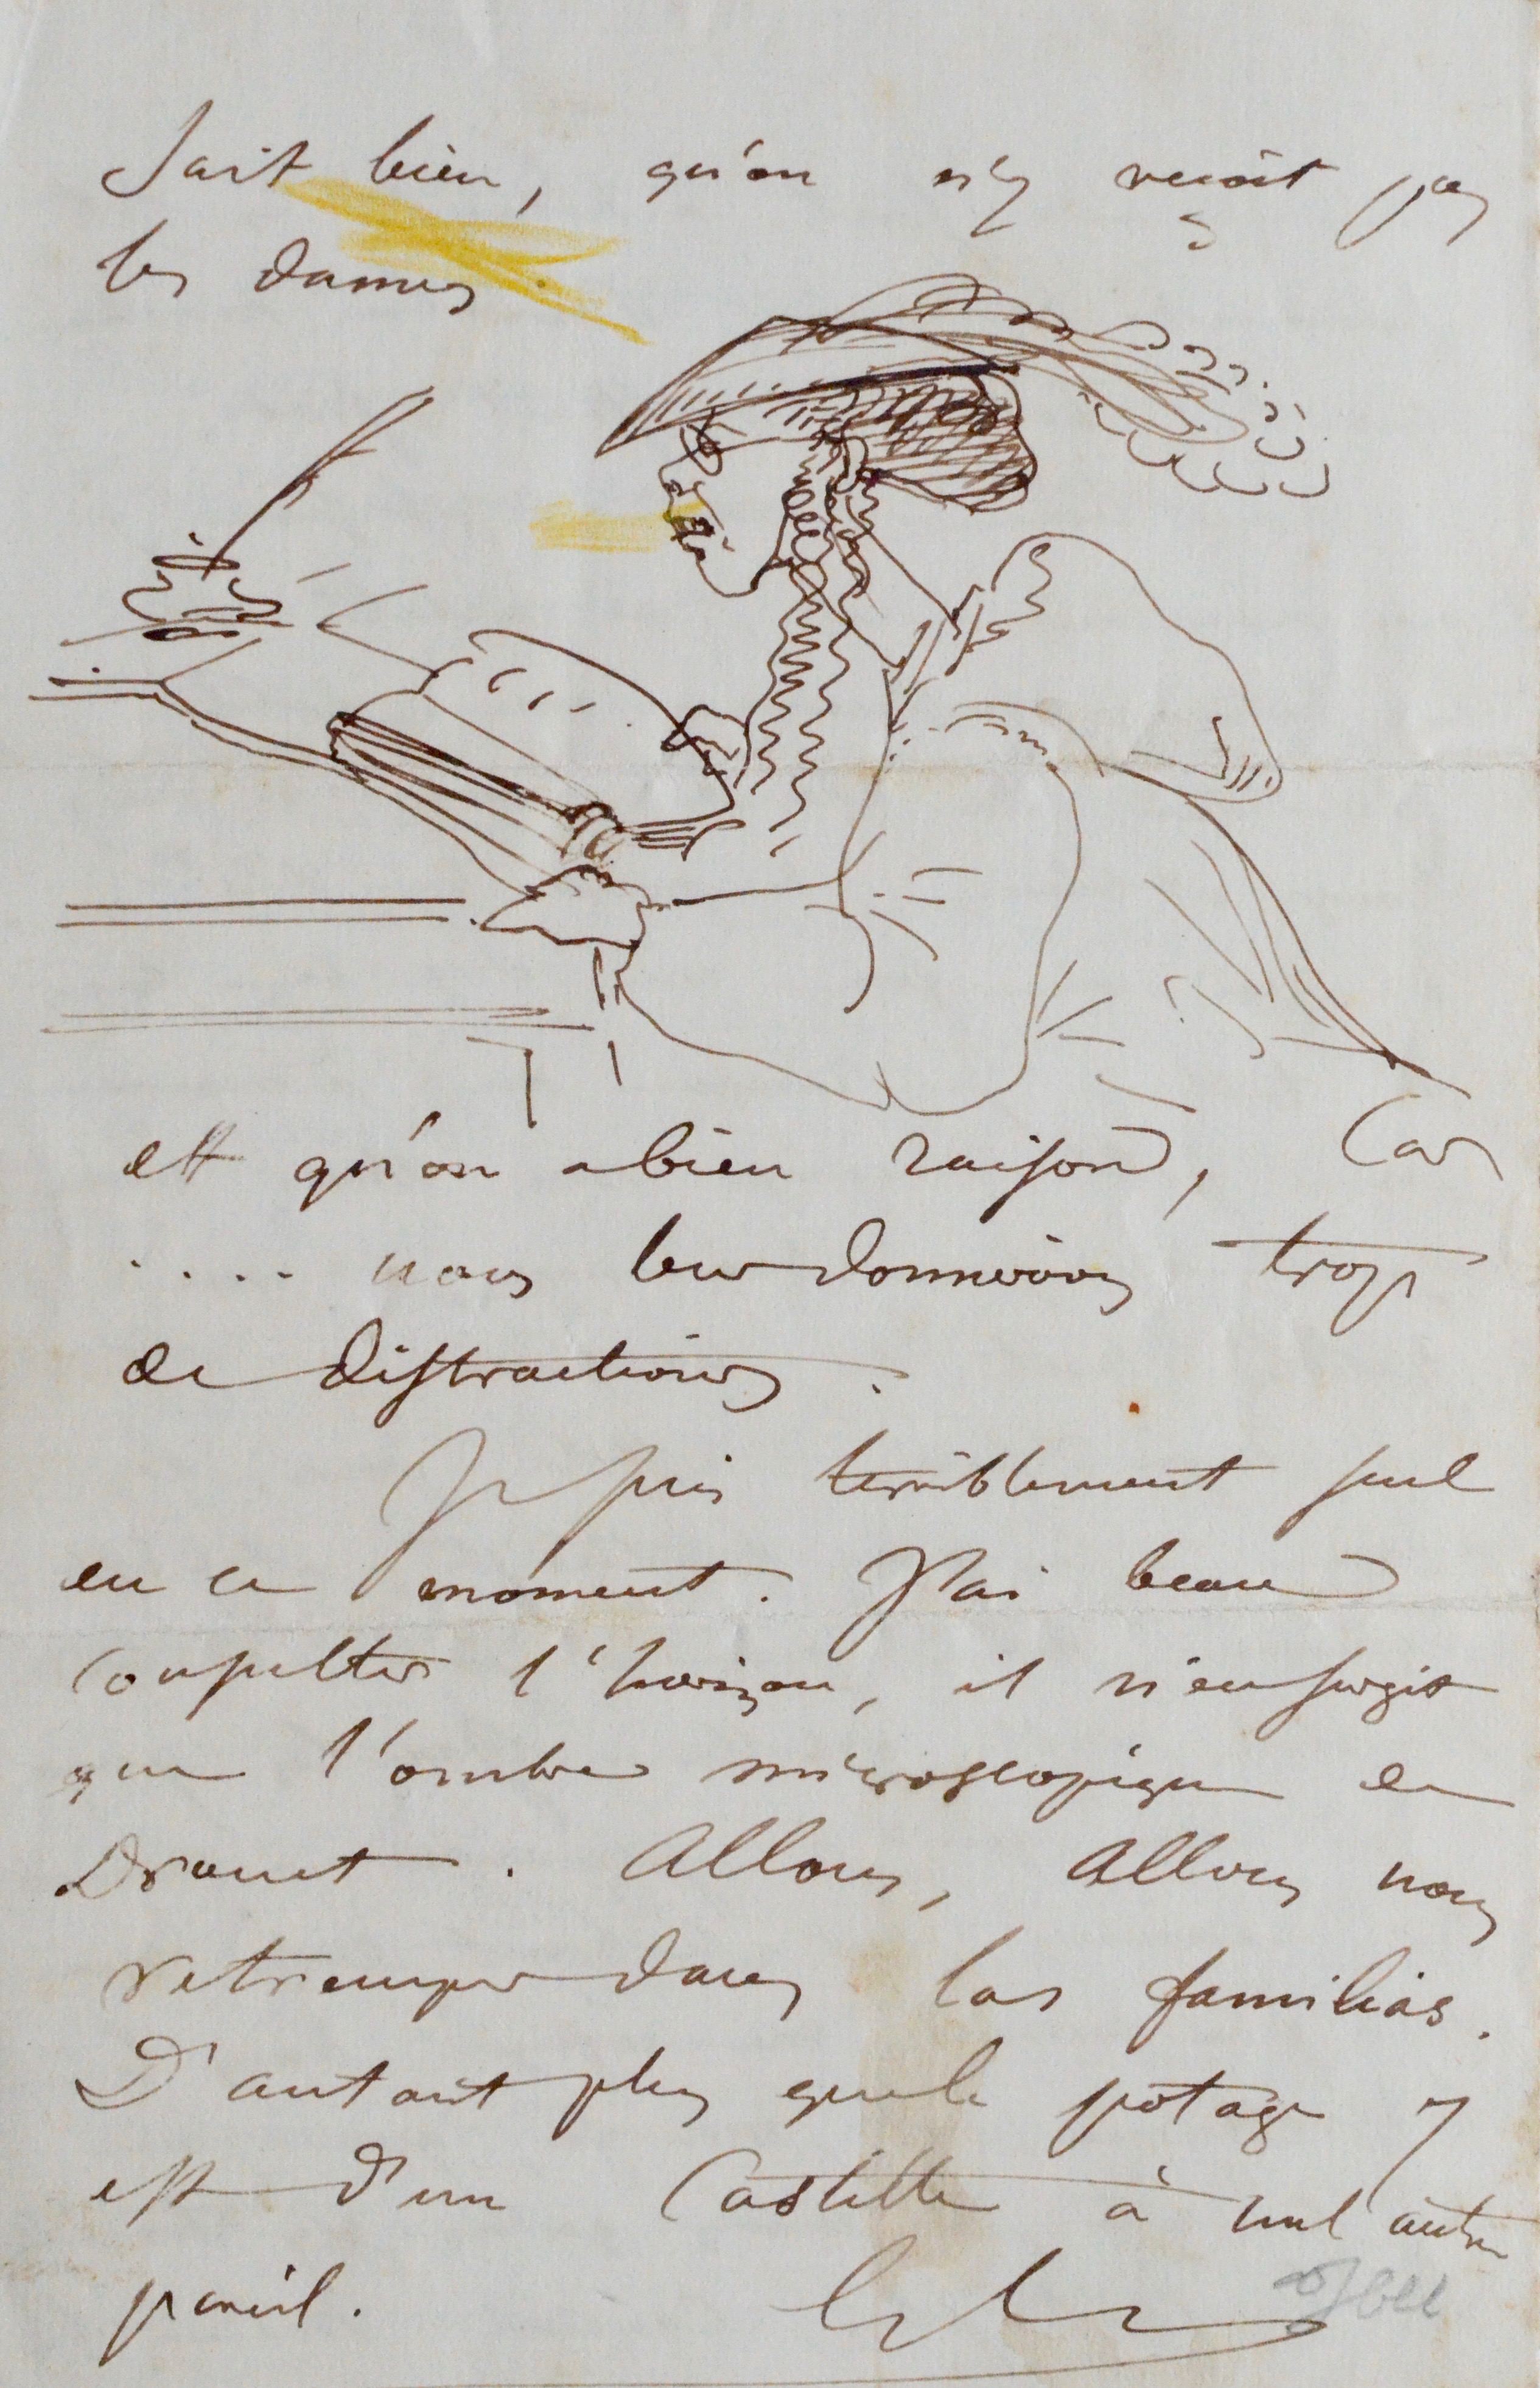 Sait bien, qu'on n'y reçoit pas
les dames
et qu'on a bien raison, Car
.... nous leur donnerions trop
de distractions.
Je suis terriblement seul
en ce moment. J'ai beau
Consulter l'horizon, il n'en surgit
que l'ombre microscopique de
Drouet. Allons, Allons nous
retremper dans las familias.
D'autant plus que le potage y
est d'un Castille à nul autre
pareil.